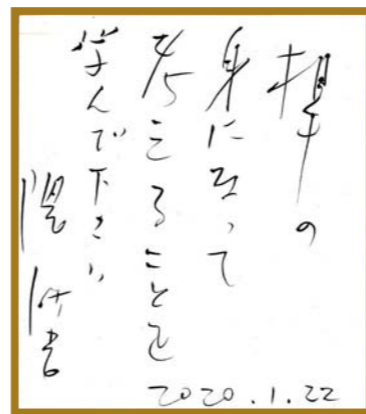 相手の
身になって
考えることを
学んで下さい
2020.1.22